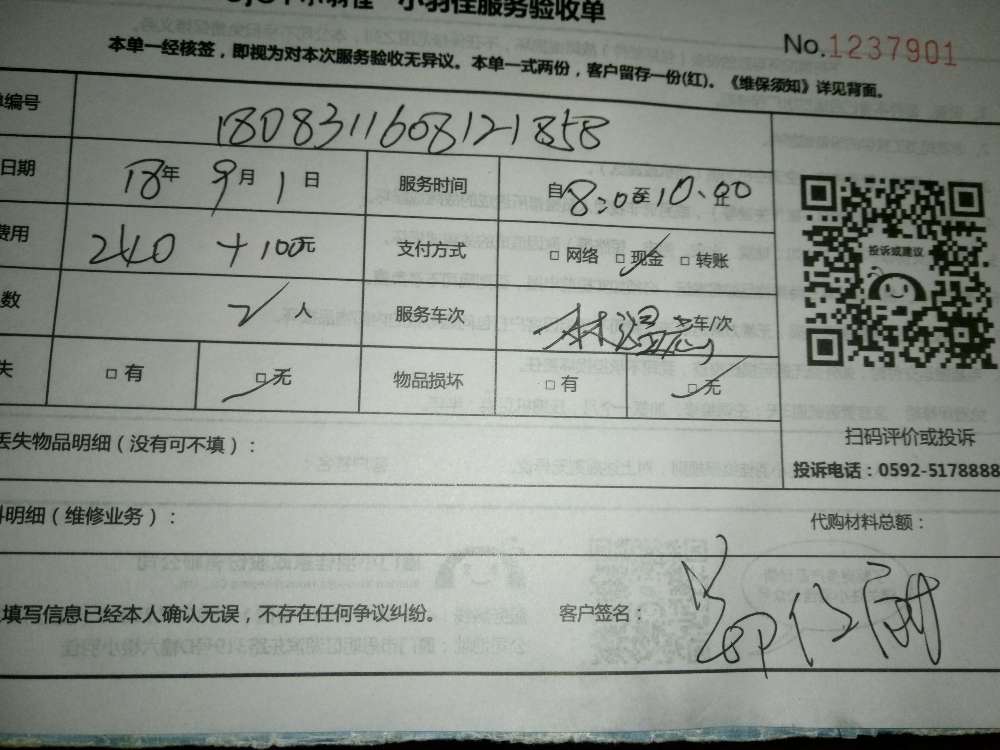 小羽佳服务验收单
No.1237901
本单一经核签，即视为对本次服务验收无异议。本单一式两份，客户留存一份(红)。《维保须知》详见背面。
编号 180831160812185B
日期 18年 9月 1日 服务时间 自8:00至10:00止
费用 240 + 100元 支付方式 □ 网络 □ 现金 □ 转账
投诉或建议
数 2人 服务车次 车/次
失 □ 有 □ 无 物品损坏 □ 有 □ 无
扫码评价或投诉
丢失物品明细（没有可不填）：
投诉电话：0592-5178888
明细（维修业务）： 代购材料总额：
填写信息已经本人确认无误，不存在任何争议纠纷。 客户签名：